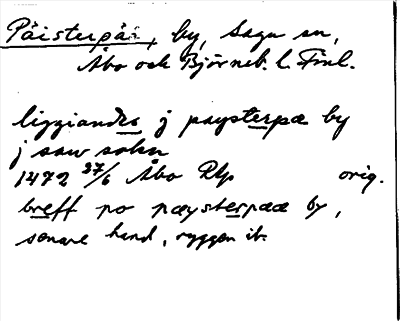 Päisterpää, by, Sagu sn,
Åbo och Björneb. l. Finl.
liggiandes j paysterpæ by
j saw sokn
1472 27/6 Åbo Rtp orig.
breff po pæysterpææ by,
senare hand, ryggen ib.